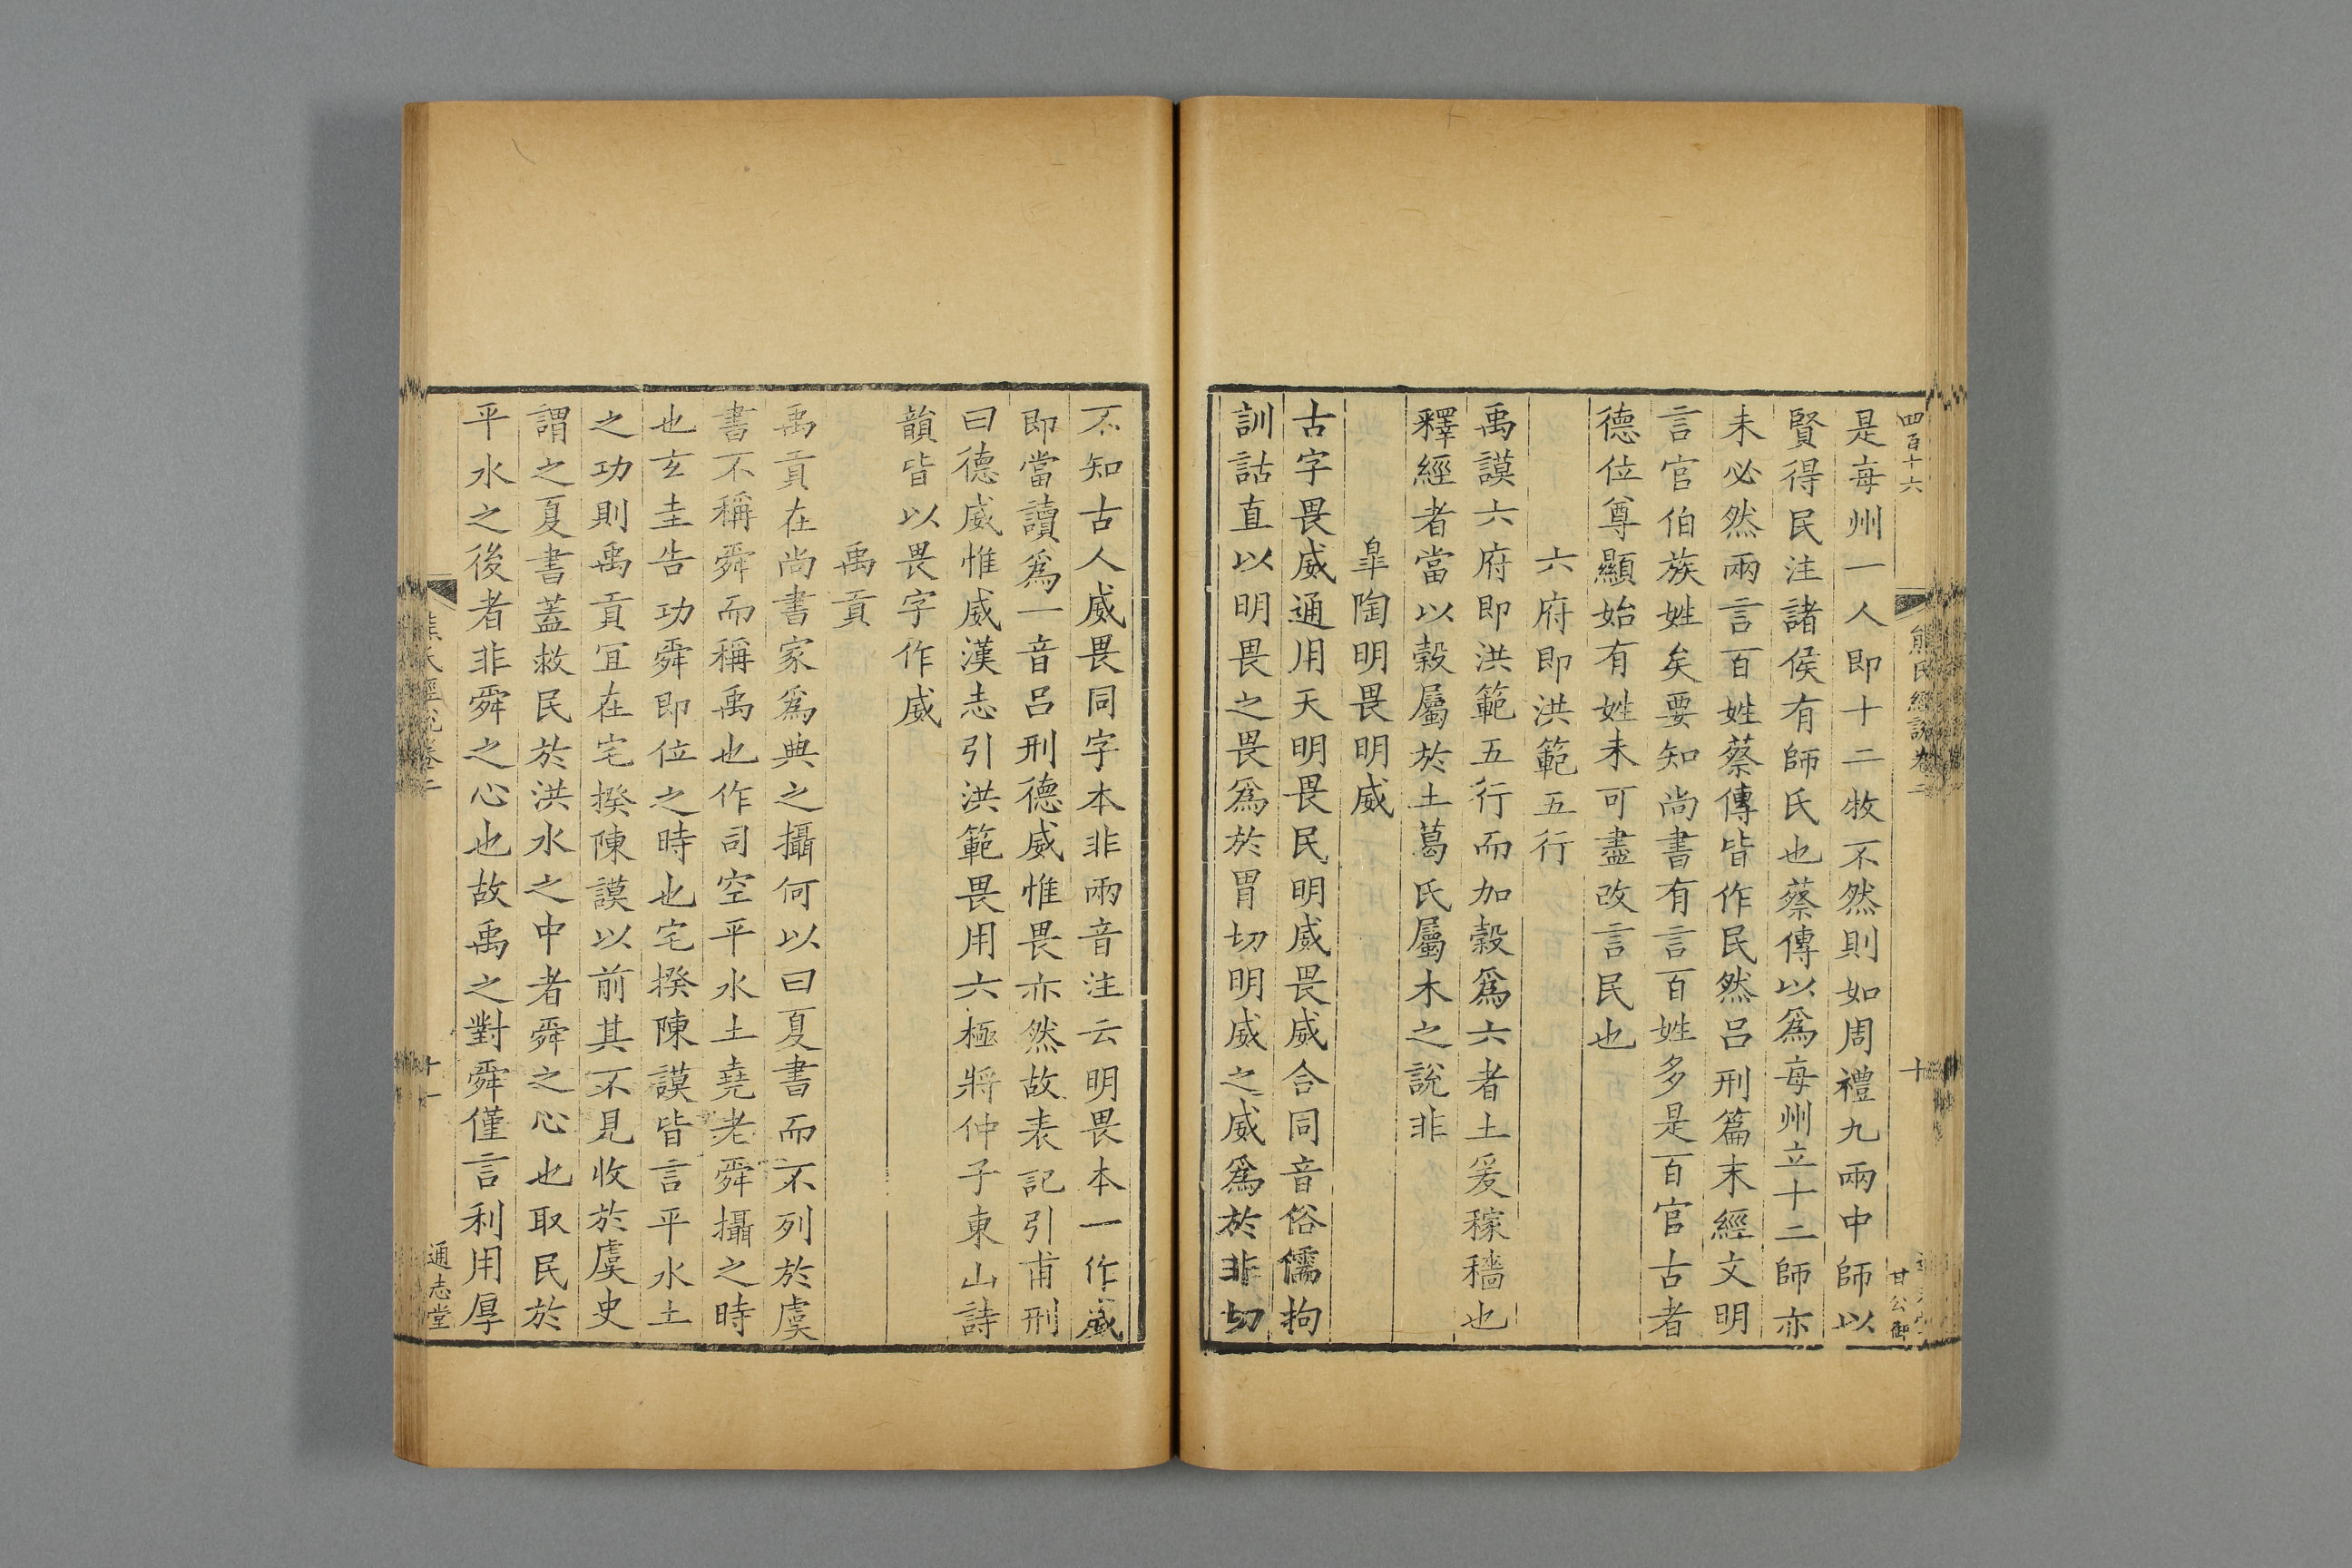 四百十六
熊氏經說卷二
十
甘公御
是每州一人即十二牧不然則如周禮九兩中師以
賢得民注諸侯有師氏也蔡傳以爲每州立十二師亦
未必然兩言百姓蔡傳皆作民然呂刑篇末經文明
言官伯族姓矣要知尚書有言百姓多是百官古者
德位尊顯始有姓未可盡改言民也
六府即洪範五行
禹謨六府即洪範五行而加穀爲六者土爰稼穡也
釋經者當以穀屬於土葛氏屬木之說非
皐陶明畏明威
古字畏威通用天明畏民明威畏威合同音俗儒拘
訓詁直以明畏之畏爲於胃切明威之威爲於非切
不知古人威畏同字本非兩音注云明畏本一作威
即當讀爲一音呂刑德威惟畏亦然故表記引甫刑
曰德威惟威漢志引洪範畏用六極將仲子東山詩
韻皆以畏字作威
禹貢
禹貢在尚書家爲典之攝何以曰夏書而不列於虞
書不稱舜而稱禹也作司空平水土堯老舜攝之時
也玄圭告功舜即位之時也宅揆陳謨皆言平水土
之功則禹貢冝在宅揆陳謨以前其不見收於虞史
謂之夏書蓋救民於洪水之中者舜之心也取民於
平水之後者非舜之心也故禹之對舜僅言利用厚
熊氏經說卷二
十一
通志堂